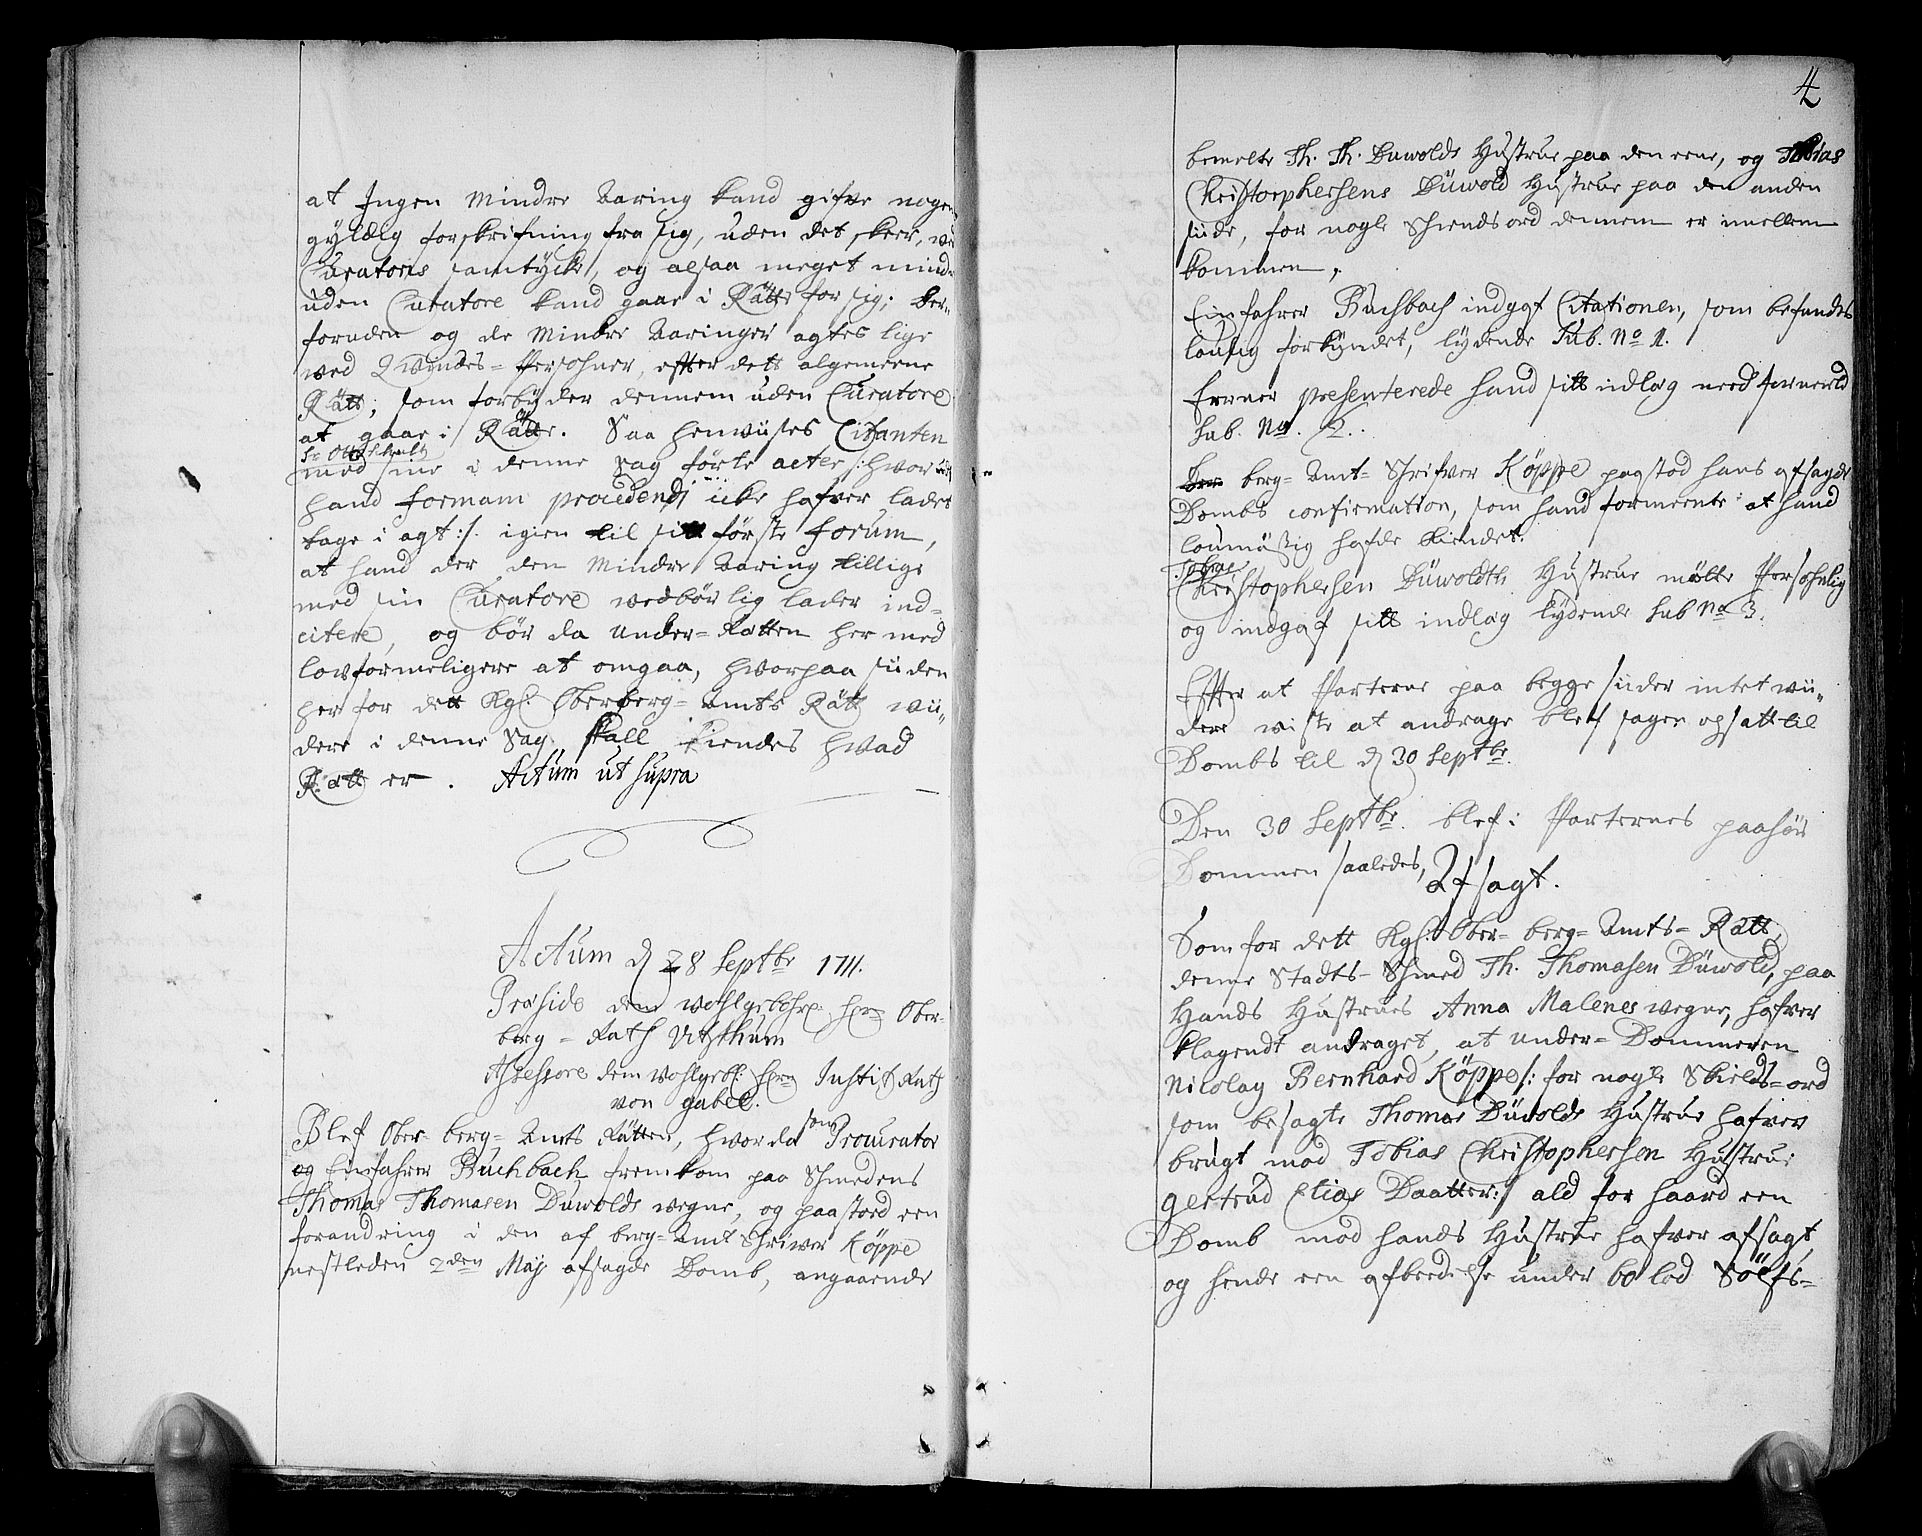 at Ingen Mindre Aaring kand gifve nogen
gyldig forskrifning fra sig, uden det skeer, ved
Curatoris samtycke, og alsaa meget mindre
uden Curatore kand gaae i Rätte for sig; der-
foruden og de Mindre Aaringer agtes lige
ved Qvindes-Persohner, efter dett algemeene
Rätt, som forbyder dennem uden Curatore
at gaae i Rätte. Saa henviises Citanten
Sr. Otto Schult
med sine i denne Sag förte acter /: hvor udi
hand formam procedendi icke hafver ladet
tage i agt :/. igien til sit förste forum,
at hand der den Mindre Aaring tillige
med sin Curatore vedbörlig lader ind-
citere, og bör da Under-Rätten her med
lovformeligere at omgaa, hvorpaa siiden
her for dett Kgl. Oberberg-Amts Rätt vii-
dere i denne Sag skall kiendes hvad
Rätt er. Actum ut supra
Actum d 28 Septbr 1711.
Præside dem Wohlgebohr. Hrn Ober-
berg-Rath Vitzthum
Assessore dem Wohlgeb: Hrn Justitz Rath
von Gabel.
Blef Ober-berg-Amts Rätten, hvor da som Procurator
og Einfahrer Buchbach fremkom paa Schmedens
Thomas Thomasen Duwolds vegne, og paastoed een
forandring i den af berg-Amt Schriwer Köppe
nestleden 2den Maj afsagde Domb, angaaende
4
bemelte Th. Th. Duwolds Hustrue paa den eene, og Tobias
Christophersens Düwold Hustrue paa den anden
siide, for nogle Skiendsord dennem er imellem
kommen.
Einfahrer Buchbach indgaf Citationen, som befandtes
lovlig forkyndet, lydende Sub. No 1.
Ferner presenterede hand sitt indlæg med formeld
sub. No. 2.
berg-Amt-Skrifver Köppe paastod hans afsagde
Dombs confirmation, som hand formeente at hand
loumäßig hafde kiendet.
Tobias
Christophersen Düwoldts Hustrue mötte Persohnlig
og indgaf sitt indlæg lydende Sub No 3.
Efter at Parterne paa begge siider intet vii-
dere viste at andrage blef sagen opsatt til
Dombs til d 30 Septbr.
Den 30 Septbr. blef i Parternes paahör
Dommen saaledes,
Afsagt.
Som for dett Kgl: Ober-berg-Amts-Rätt,
denne Stadts-Schmed Th. Thomasen Düwold, paa
Hands Hustrues Anna Malenes vegne, hafver
klagendt andraget, at Under-Dommeren
Nicolay Bernhard Köppe /: for nogle Skields-ord
som besagte Thomas Düwolds Hustrue hafver
brugt mod Tobias Christophersen Hustrue
Gertrud Elias Daatter :/ ald for haard een
Domb mod hands Hustrue hafver afsagt,
og hende een afbedelse under 60 lod Sölfs-